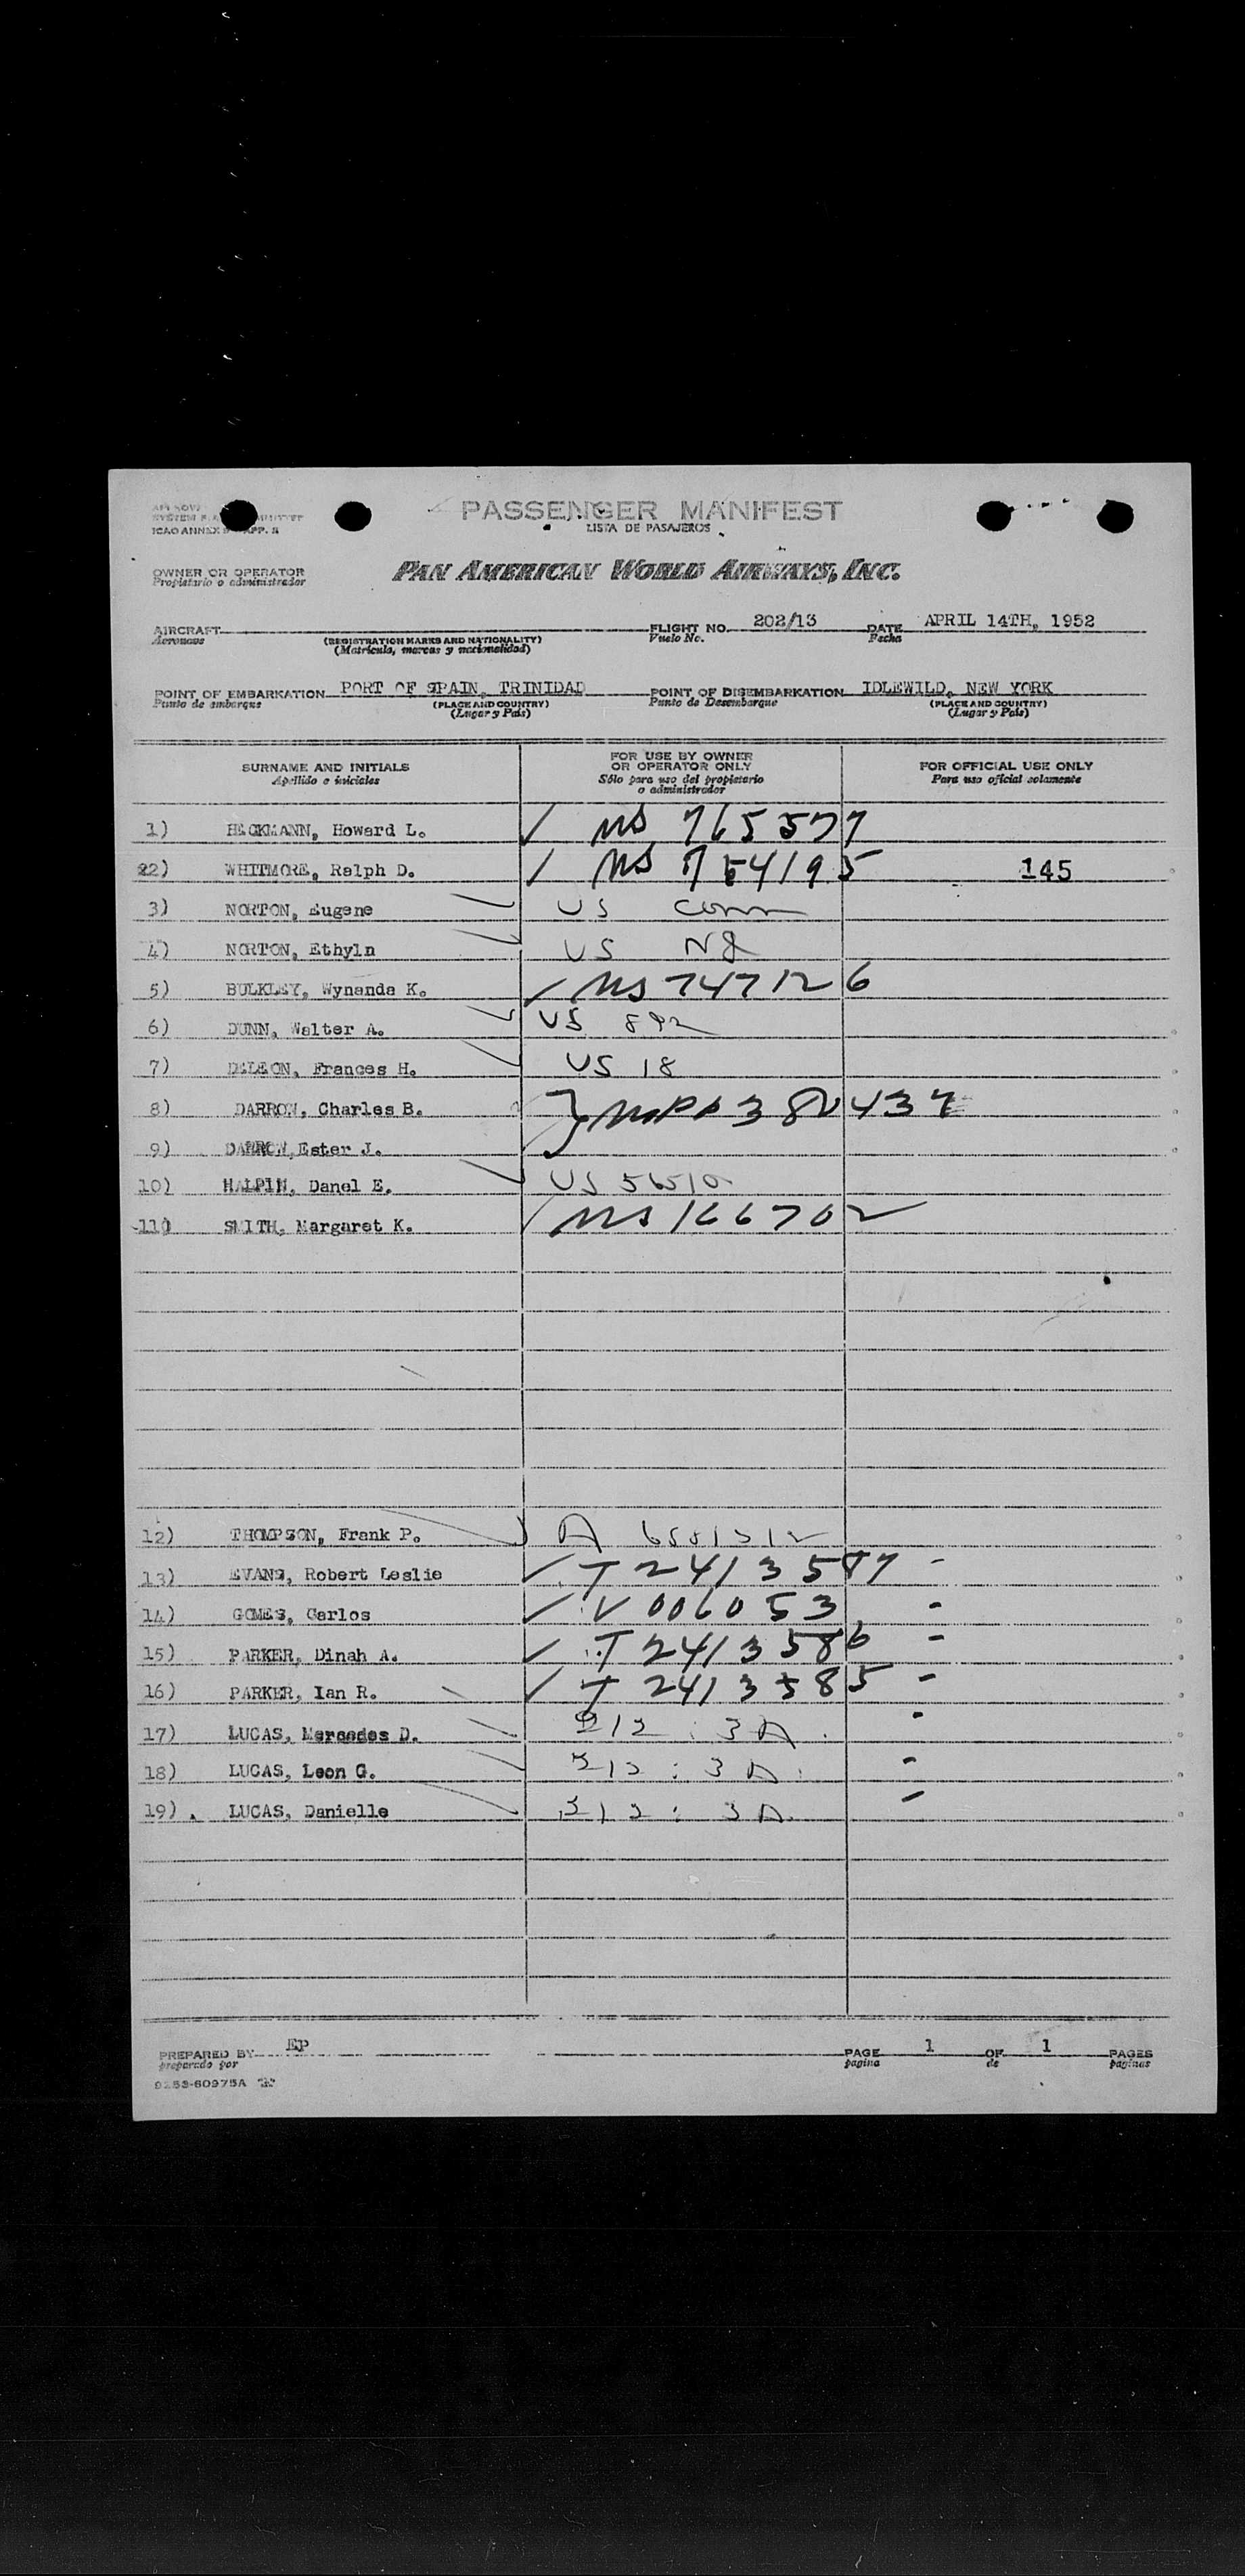 PASSENGER MANIFEST
LISTA DE PASAJEROS
ICAO ANNEX 9 APP. 2
OWNER OR OPERATOR
Propietario o administrador
PAN AMERICAN WORLD AIRWAYS, INC.
AIRCRAFT FLIGHT NO. 202/13 DATE APRIL 14TH, 1952
Aeronave (REGISTRATION MARKS AND NATIONALITY) Vuelo No. Fecha
(Matrícula, marcas y nacionalidad)
POINT OF EMBARKATION PORT OF SPAIN, TRINIDAD POINT OF DISEMBARKATION IDLEWILD, NEW YORK
Punto de embarque (PLACE AND COUNTRY) Punto de Desembarque (PLACE AND COUNTRY)
(Lugar y País) (Lugar y País)
SURNAME AND INITIALS FOR USE BY OWNER OR OPERATOR ONLY FOR OFFICIAL USE ONLY
Apellido e iniciales Sólo para uso del propietario o administrador Para uso oficial solamente
1) HECKMANN, Howard L. MS 765577
22) WHITMORE, Ralph D. MS 754195 145
3) NORTON, Eugene US Conn
4) NORTON, Ethyln US
5) BULKLEY, Wynanda K. MS 747126
6) DUNN, Walter A. US 892
7) DELEON, Frances H. US 18
8) DARROW, Charles B.
9) DARROW, Ester J.
10) HALPIN, Danel E. US
110 SMITH, Margaret K. MS 166702
12) THOMPSON, Frank P. A
13) EVANS, Robert Leslie T 2413587 -
14) GOMES, Carlos V 006053 -
15) PARKER, Dinah A. T 2413586 -
16) PARKER, Ian R. T 2413585 -
17) LUCAS, Mercedes D. 212 : 3A -
18) LUCAS, Leon G. 212 : 3A -
19) . LUCAS, Danielle 212 : 3A -
PREPARED BY EP PAGE 1 OF 1 PAGES
preparado por página de páginas
9253-60975A